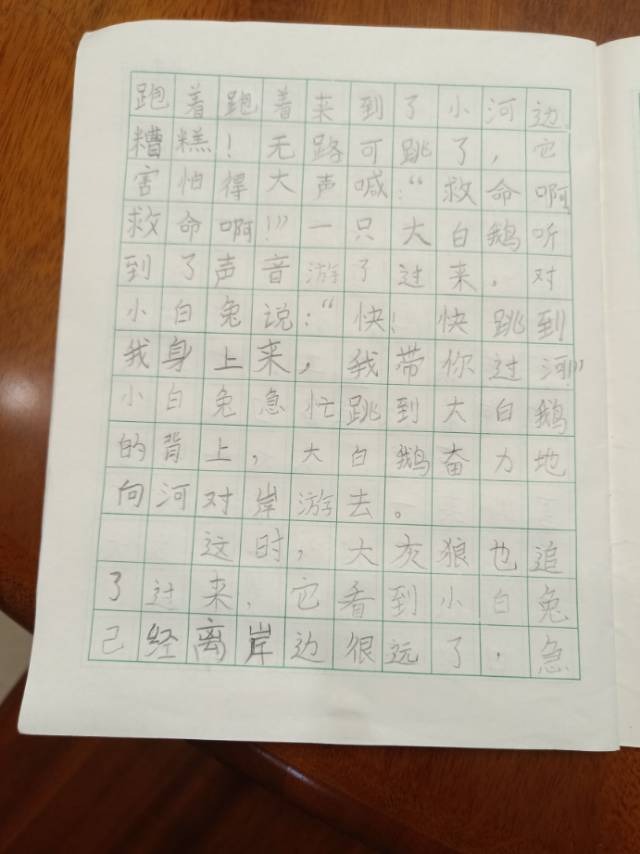 跑着跑着来到了小河边
糟糕！无路可跳了，它
害怕得大声喊：“救命啊
救命啊！”一只大白鹅听
到了声音游了过来，对
小白兔说：“快！快跳到
我身上来，我带你过河”
小白兔急忙跳到大白鹅
的背上，大白鹅奋力地
向河对岸游去。
这时，大灰狼也追
了过来，它看到小白兔
己经离岸边很远了，急